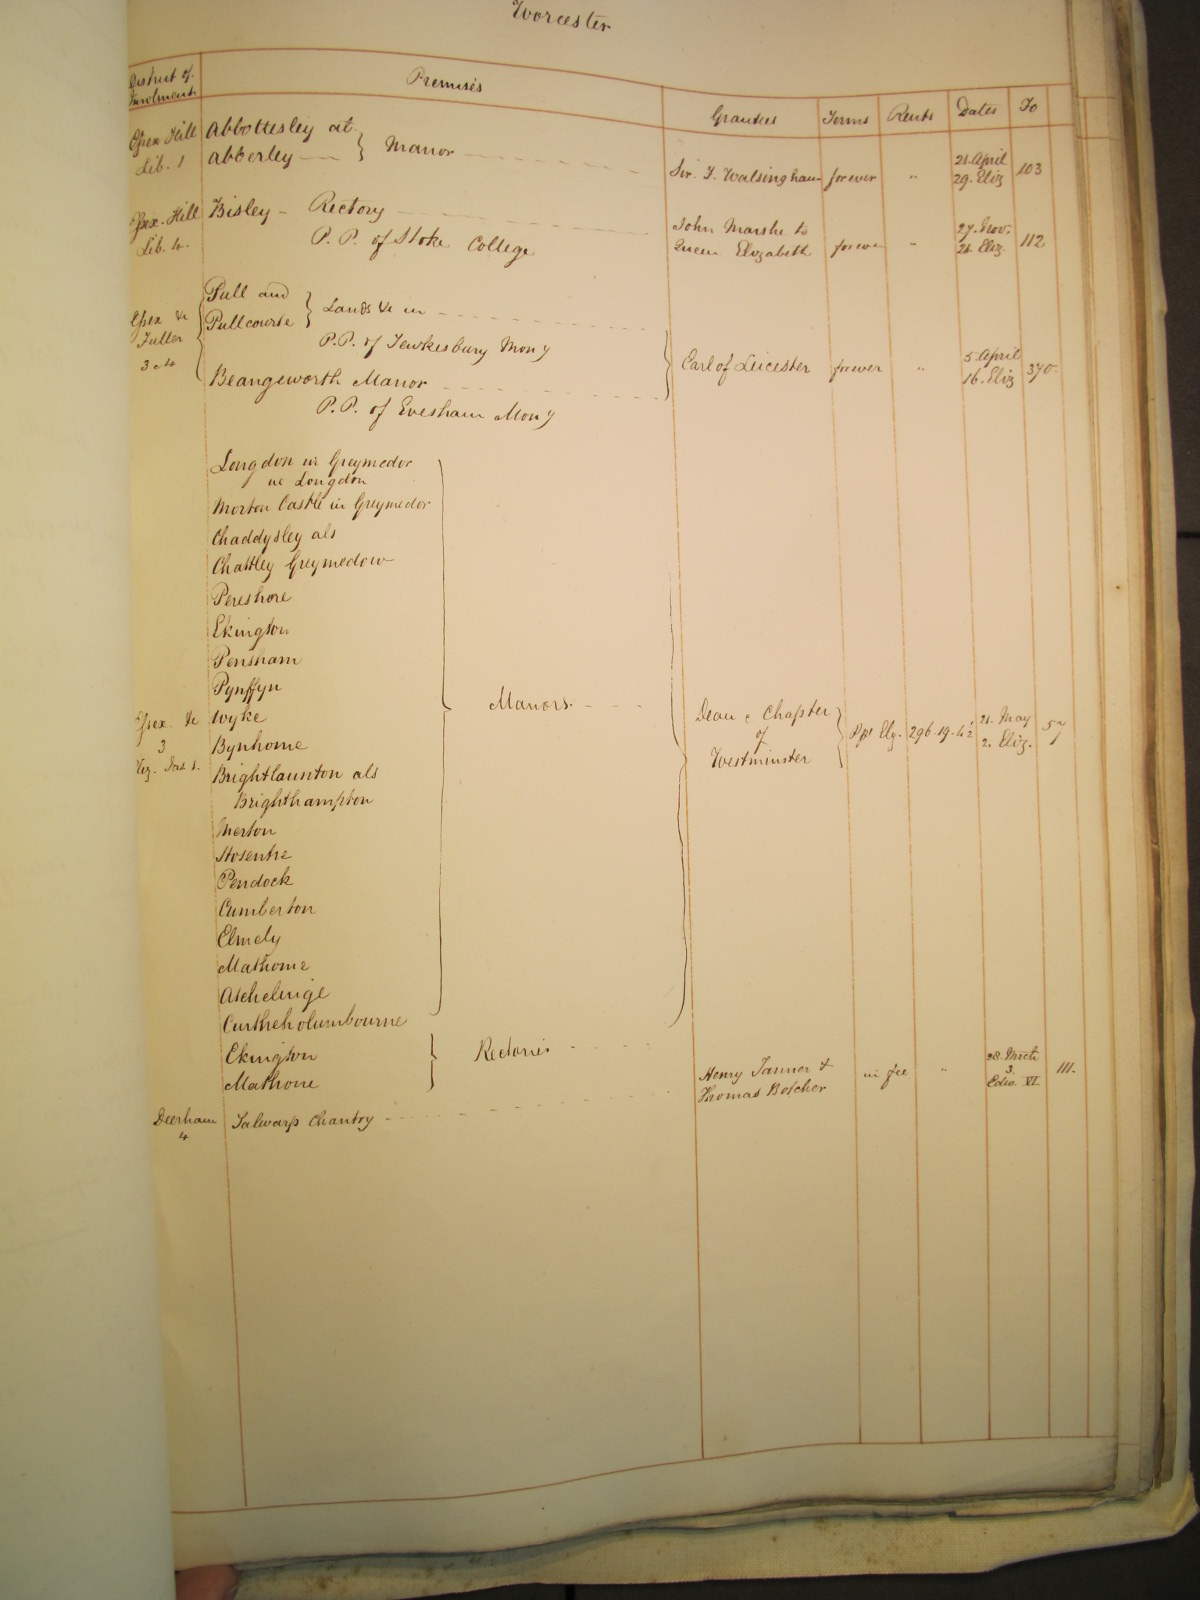 Worcester
District of Inrolments Premises Grantees Terms Rents Dates Fo
Essex Hill Abbottesley at
Lib. 1 Abberley } Manor Sir F. Walsingham forever " 21. April 29. Eliz 103
Essex Hill Bisley - Rectory John Marshe to forever " 27. Nov. 112
Lib. 4. P. P. of Stoke College Queen Elizabeth 21. Eliz.
Essex & Pull and
Fuller Pullcourte } Lands &c in
3 & 4 P.P. of Tewkesbury Mony
Earl of Leicester forever " 5. April 16. Eliz 370.
Beangeworth Manor
P.P. of Evesham Mony
Longdon in Greymedor
Longdon
Morton Castle in Greymedor
Chaddysley als
Chattley Greymedow
Pereshore
Ekington
Pensham
Pynffyn
Essex &c Wyke Manors. Dean & Chapter 21. May 57
3 Bynhome of 2. Eliz.
Brightlaunton als Westminster
Brighthampton
Morton
Stosenhe
Pendock
Cumberton
Elmely
Mathome
Atchelinge
Curtheholumbourne
Ekington } Rectories
Mathone
Henry Tanner & in fee " 28. March 111.
Thomas Botcher 3. Edw. VI.
Deerham Salwarp Chantry
4